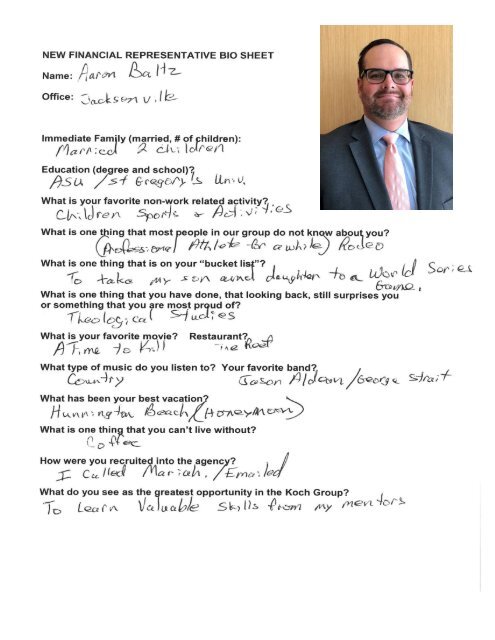 NEW FINANCIAL REPRESENTATIVE BIO SHEET
Name: Aaron Baltz
Office: Jacksonville
Immediate Family (married, # of children):
Married 2 children
Education (degree and school)?
ASU / St Gregory's Univ.
What is your favorite non-work related activity?
Children Sports & Activities
What is one thing that most people in our group do not know about you?
(Professional Athlete for awhile) Rodeo
What is one thing that is on your “bucket list”?
To take my son and daughter to a World Series
Game.
What is one thing that you have done, that looking back, still surprises you
or something that you are most proud of?
Theological Studies
What is your favorite movie? Restaurant?
A Time to Kill The Roof
What type of music do you listen to? Your favorite band?
Country Jason Aldean / George Strait
What has been your best vacation?
Hunnington Beach (Honeymoon)
What is one thing that you can't live without?
Coffee
How were you recruited into the agency?
I Called Mariah. / Emailed
What do you see as the greatest opportunity in the Koch Group?
To Learn Valuable Skills from my mentors